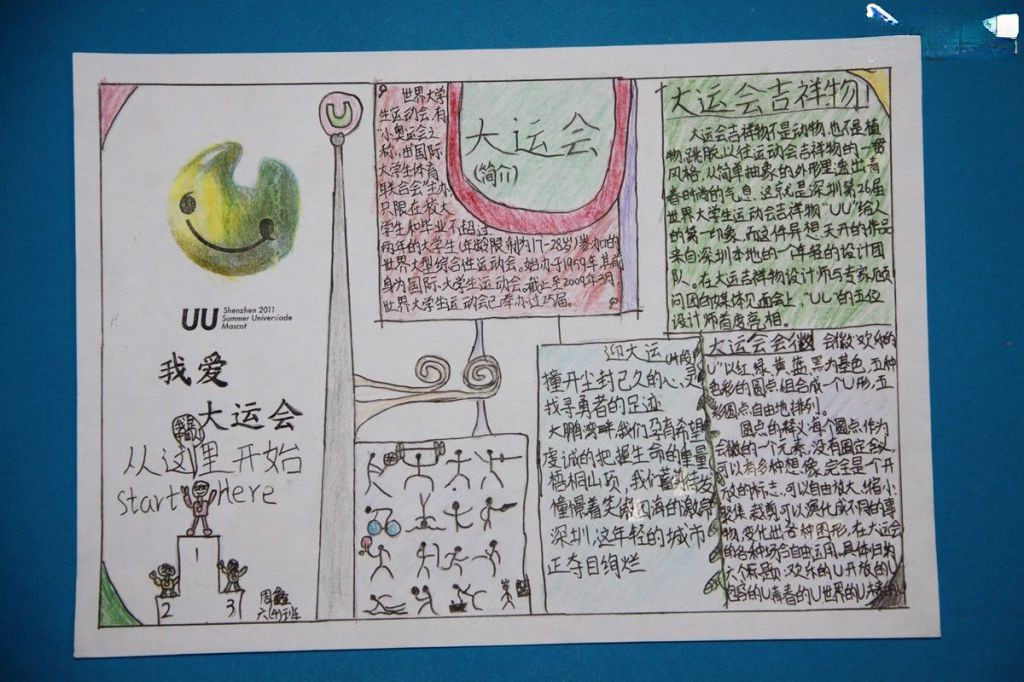 UU
Shenzhen 2011
Summer Universiade
Mascot
我爱
大运会
从这里开始
Start Here
1
2
3
六(4)班
U
世界大学
生运动会,有
“小奥运会”之
称,由国际
大学生体育
联合会主办,
只限在校大
学生和毕业不超过
两年的大学生(年龄限制为17-28岁)参加的
世界大型综合性运动会。始办于1959年,其前
身为国际大学生运动会。截止至2009年7月,
世界大学生运动会已举办过25届。
大运会
(简介)
大运会吉祥物
大运会吉祥物不是动物,也不是植
物,跳脱以往运动会吉祥物的一贯
风格,从简单抽象的外形里,透出青
春时尚的气息,这就是深圳第26届
世界大学生运动会吉祥物“UU”给人
的第一印象。而这件异想天开的作品
来自深圳本地的一个年轻的设计团
队。在大运吉祥物设计师与专家顾
问团的媒体见面会上,“UU”的五位
设计师首度亮相。
迎大运(片段)
撞开尘封已久的心灵
找寻勇者的足迹
大鹏湾畔,我们孕育希望
虔诚的把握生命的重量
梧桐山顶,我们蓄势待发
憧憬着笑傲四海的激昂
深圳,这年轻的城市
正夺目绚烂
大运会会徽 会徽“欢乐的
U”以红、绿、黄、蓝、黑为基色,五种
色彩的圆点组合成一个U形,五
彩圆点自由地排列。
圆点的释义:每个圆点,作为
会徽的一个元素,没有固定含义,
可以有多种想象,完全是个开
放的标志,可以自由放大、缩小、
聚集、裁剪,可以演化成不同的事
物,变化出各种图形,在大运会
的各种场合自由运用。具体归为
六个标题:欢乐的U、开放的U、
的U、青春的U、世界的U、